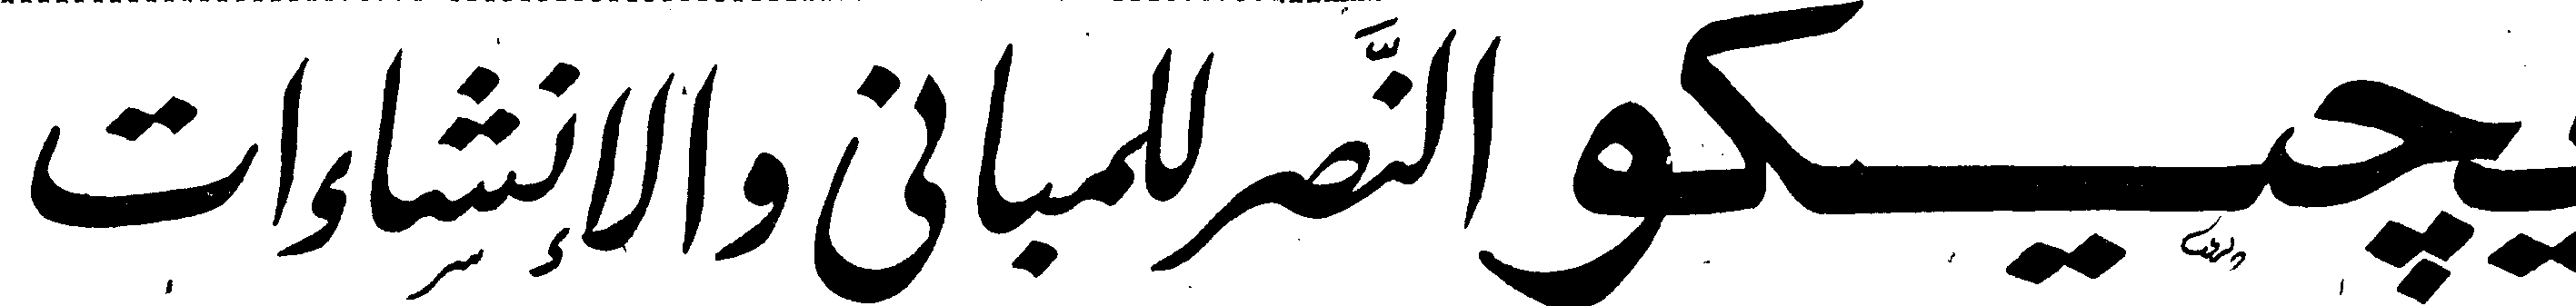 يچيـكو النَّصر للمبانى والإنشاءات